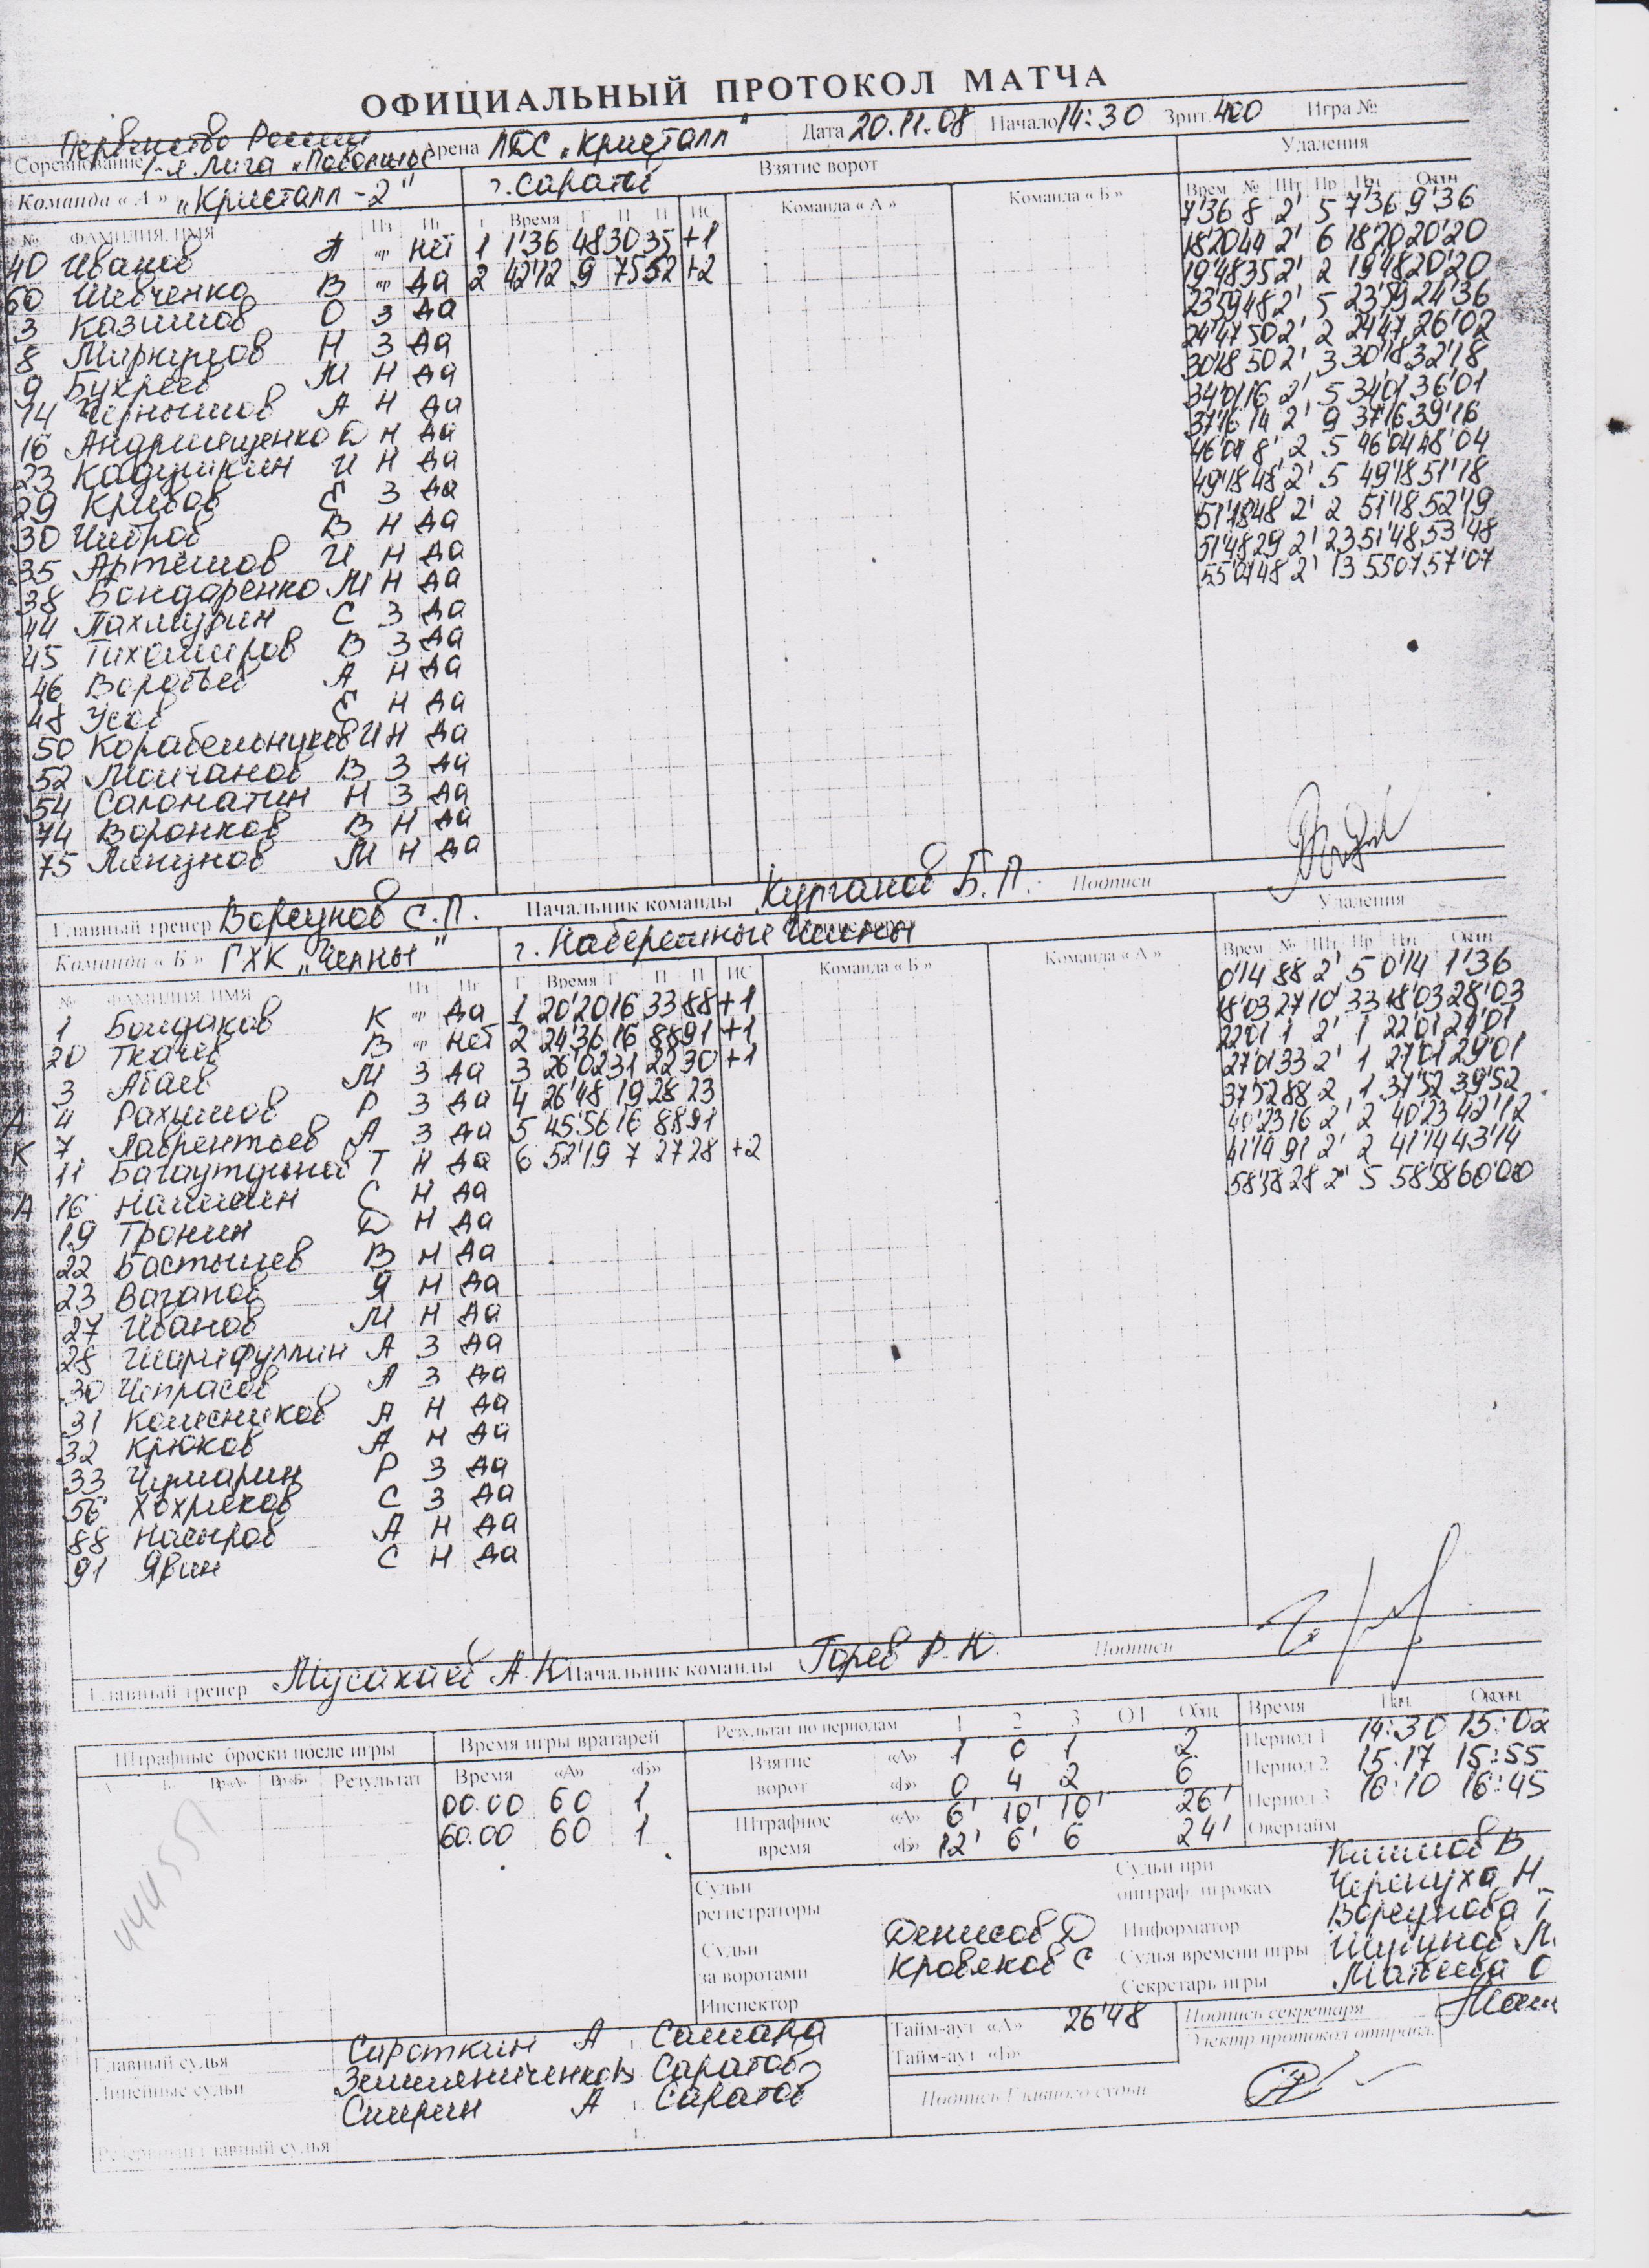 ОФИЦИАЛЬНЫЙ ПРОТОКОЛ МАТЧА
Первенство России
Соревнование 1-я Лига „Поволжье" Арена ЛДС „Кристалл" Дата 20.11.08 Начало 14:30 Зрит. 400 Игра №
Команда « А » „Кристалл-2" г. Саратов Взятие ворот Удаления
№ ФАМИЛИЯ, ИМЯ Пз Иг Г Время Г П П ИС Команда « А » Команда « Б » Врем № Шт Пр Нч Окон
40 Иванов А вр Нет 1 1'36 48 30 35 +1 7'36 8 2' 5 7'36 9'36
60 Шевченко В вр Да 2 42'12 9 75 52 +2 18'20 44 2' 6 18'20 20'20
3 Казимов О З Да 19'48 35 2' 2 19'48 20'20
8 Н З Да 23'59 48 2' 5 23'59 24'36
9 Букреев М Н Да 24'47 50 2' 2 24'47 26'02
14 Чернышов А Н Да 30'18 50 2' 3 30'18 32'18
16 Андрющенко Д Н Да 34'01 16 2' 5 34'01 36'01
23 Кадушкин И Н Да 37'16 14 2' 9 37'16 39'16
29 Кривов Е З Да 46'04 8 2 5 46'04 48'04
30 В Н Да 49'18 48 2' 5 49'18 51'18
35 Артемов И Н Да 51'18 48 2' 2 51'18 52'19
38 Бондаренко М Н Да 51'48 29 2' 23 51'48 53'48
44 Пахмурин С З Да 55'07 48 2' 13 55'07 57'07
45 Тихомиров В З Да
46 Воробьев А Н Да
48 Усов Е Н Да
50 Корабельников И Н Да
52 Молчанов В З Да
54 Саломатин Н З Да
74 Воронков В Н Да
75 Ляпунов М Н Да
Главный тренер Ворсунов С.П. Начальник команды Курганов Б.П. Подписи
Команда « Б » ГХК „Челны" г. Набережные Челны Удаления
№ ФАМИЛИЯ, ИМЯ Пз Иг Г Время Г П П ИС Команда « Б » Команда « А » Врем № Шт Пр Нч Окон
1 Болдаков К вр Да 1 20'20 16 33 88 +1 0'14 88 2' 5 0'14 1'36
20 Ткачев В вр Нет 2 24'36 16 88 91 +1 18'03 27 10' 33 18'03 28'03
3 Агаев М З Да 3 26'02 31 22 30 +1 22'01 1 2' 1 22'01 24'01
А 4 Рахимов Р З Да 4 26'48 19 28 23 27'01 33 2' 1 27'01 29'01
К 7 Лаврентьев А З Да 5 45'56 16 88 91 37'52 88 2 1 37'52 39'52
11 Багаутдинов Т Н Да 6 52'19 7 27 28 +2 40'23 16 2' 2 40'23 42'12
А 16 С Н Да 41'14 91 2' 2 41'14 43'14
19 Тронин Д Н Да 58'58 28 2' 5 58'58 60'00
22 Бастылев В Н Да
23 Ваганов Я Н Да
27 Иванов М Н Да
28 Шарифуллин А З Да
30 Чепрасов А З Да
31 Колесников А Н Да
32 Крюков А Н Да
33 Чумарин Р З Да
56 Хохряков С З Да
88 Насыров А Н Да
91 Явин С Н Да
Главный тренер А.Ю. Начальник команды Горев Р.Ю. Подписи
Штрафные броски после игры Время игры вратарей Результат по периодам 1 2 3 ОТ Общ. Время Нач. Оконч.
«А» «Б» Вр«А» Вр«Б» Результат Время «А» «Б» Взятие ворот «А» 1 0 1 2 Период 1 14:30 15:02
00.00 60 1 «Б» 0 4 2 6 Период 2 15:17 15:55
60.00 60 1 Штрафное время «А» 6' 10' 10' 26' Период 3 16:10 16:45
«Б» 12' 6' 6 24' Овертайм
444551
Судьи регистраторы Судьи при оштраф. игроках Климов В
Черепуха Н
Судьи за воротами Денисов Д Информатор Ворсунова Т
Кровяков С Судья времени игры М.
Секретарь игры О
Инспектор
Тайм-аут «А» 26'48 Подпись секретаря
Тайм-аут «Б» Электр. протокол отправл.
Главный судья Сироткин А г. Самара
Линейные судьи В г. Саратов
А г. Саратов
Подпись Главного судьи
Резервный главный судья г.